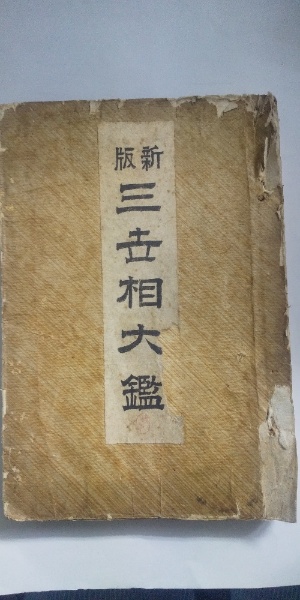 新版
三世相大鑑